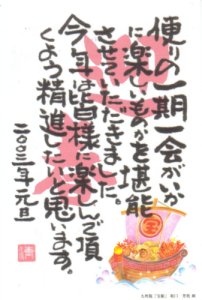 便りの一期一会がいか
に楽しいものかを堪能
させていただきました。
今年は皆様に楽しんで頂
くよう精進したいと思います。
二〇〇三年 元旦
宝